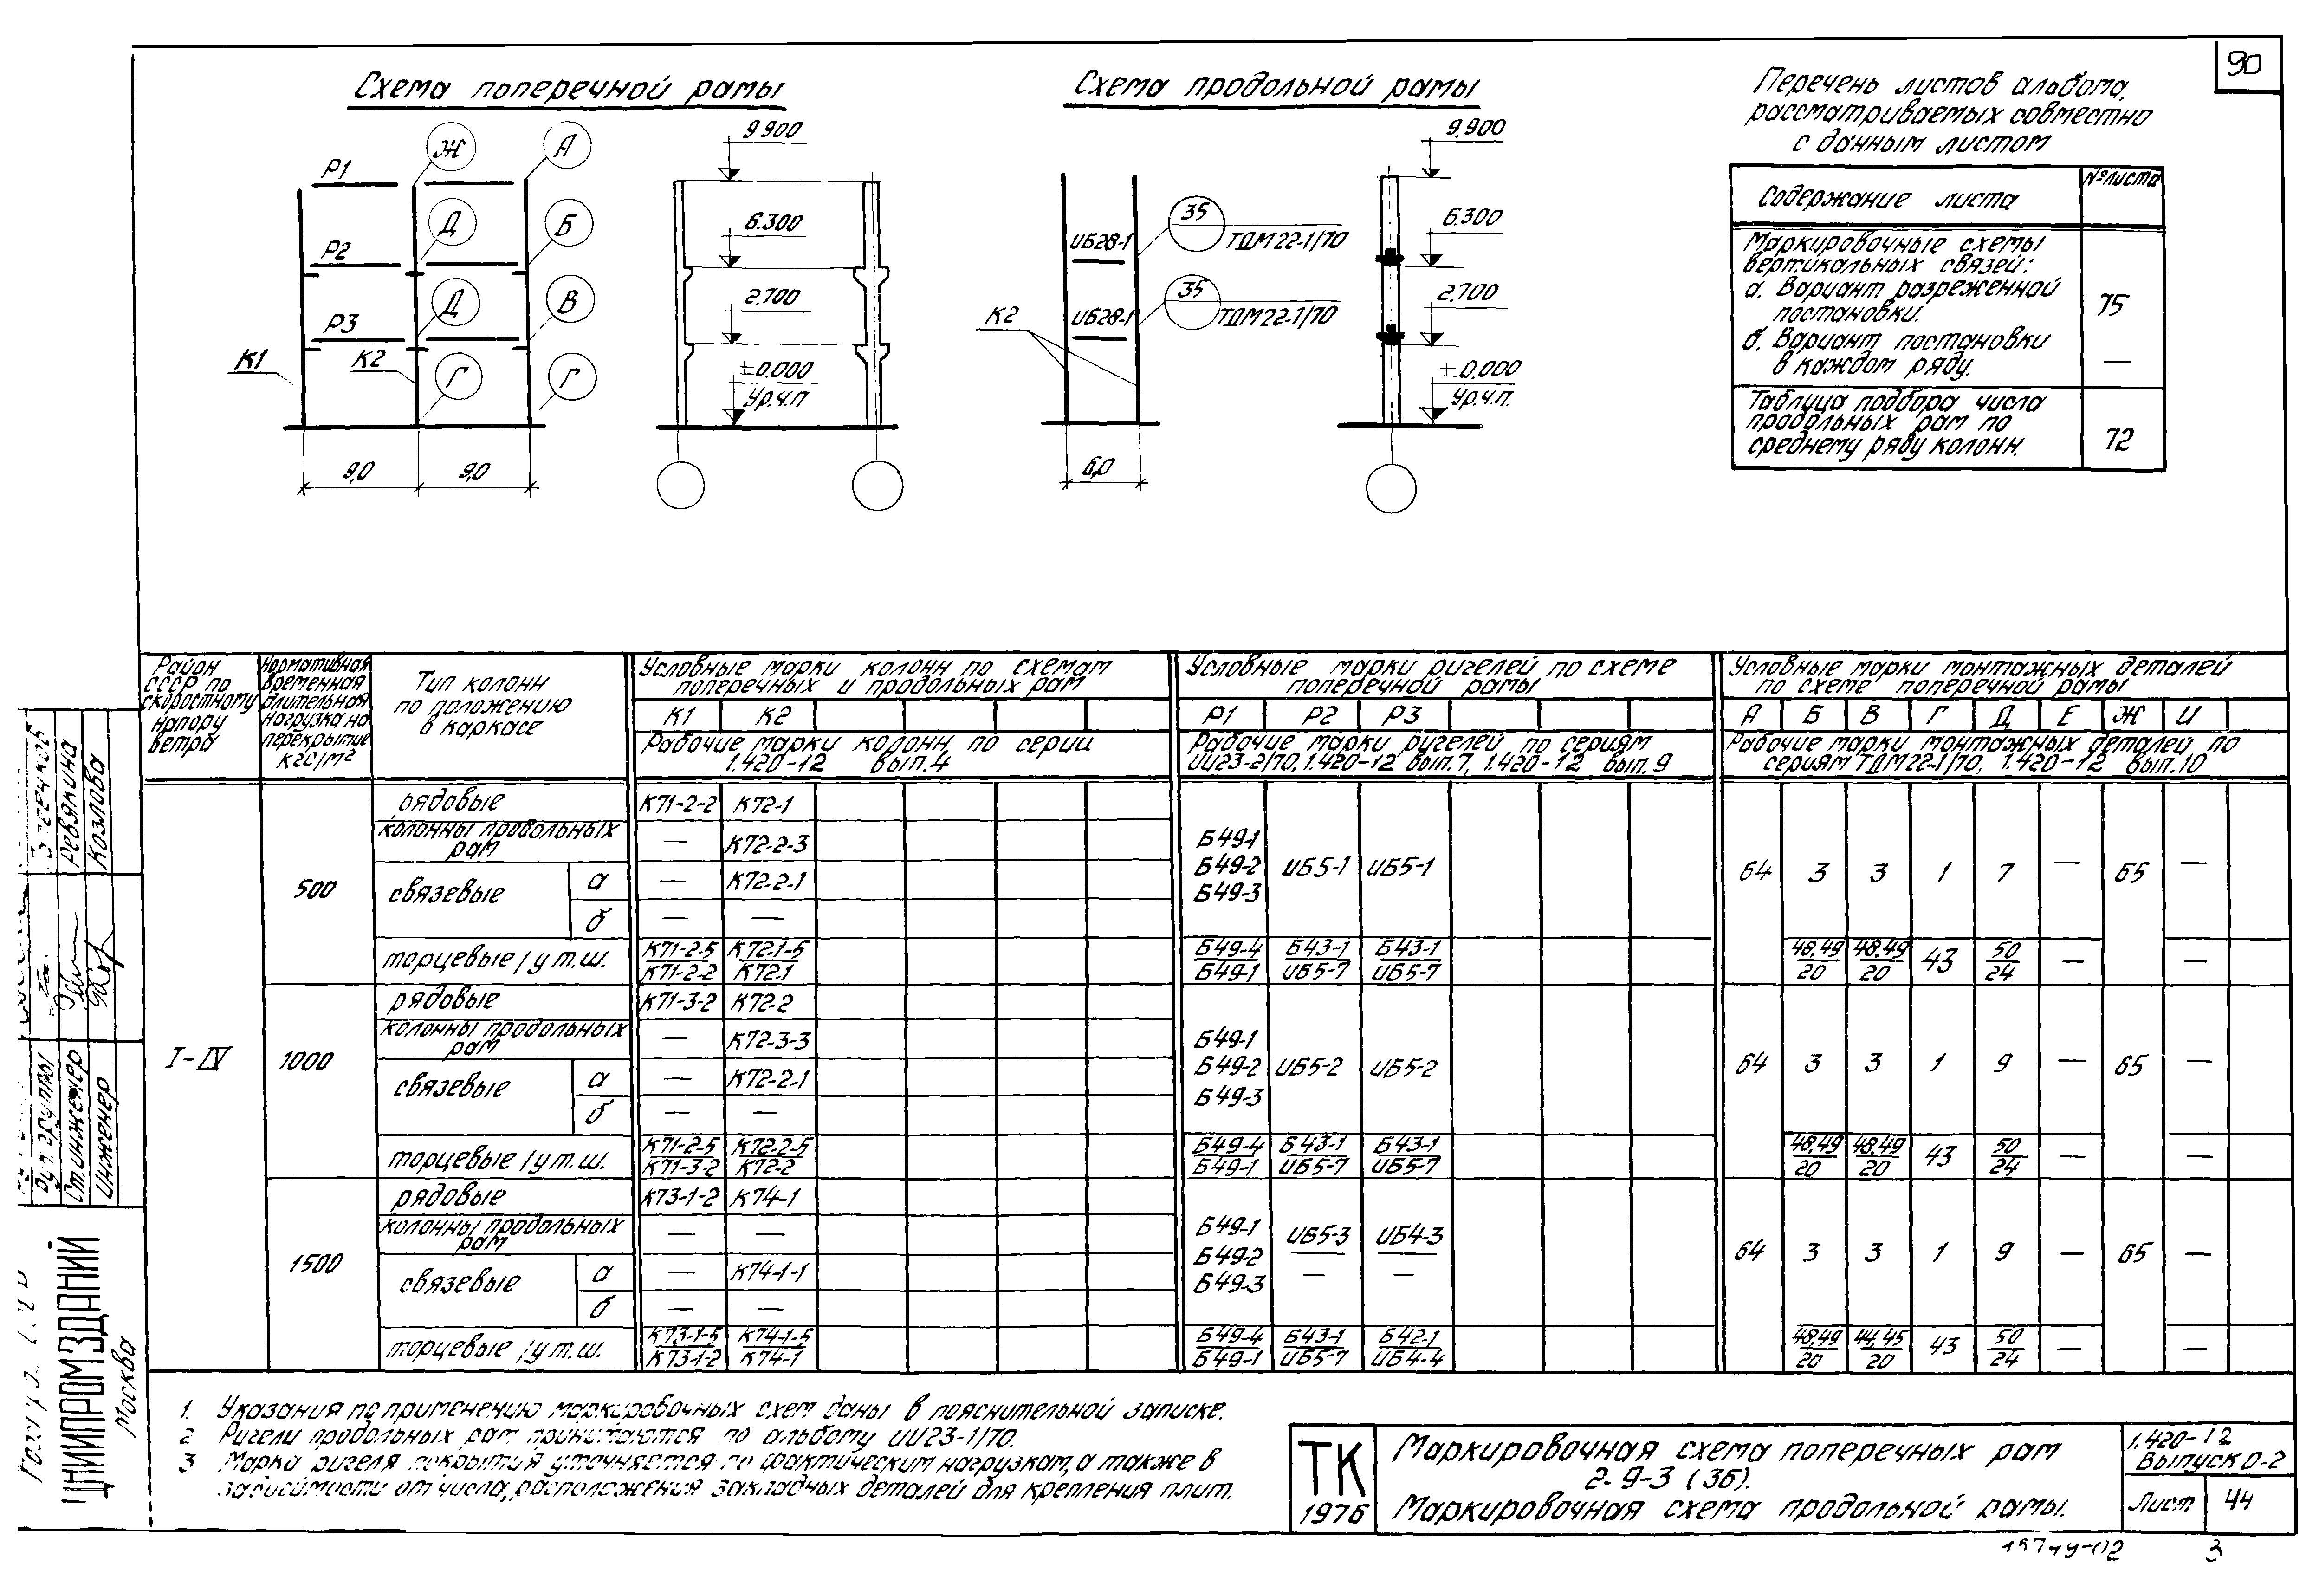 90
Схема поперечной рамы
Схема продольной рамы
Перечень листов альбома,
рассматриваемых совместно
с данным листом
Р1
Р2
Р3
К1
К2
Ж
А
Д
Б
Д
В
Г
Г
9,0
9,0
9.900
6.300
2.700
±0.000
Ур.ч.п
ИБ28-1
ИБ28-1
К2
35
ТДМ22-1/70
35
ТДМ22-1/70
6,0
9.900
6.300
2.700
±0.000
Ур.ч.п.
Содержание листа
№листа
Маркировочные схемы
вертикальных связей:
а. Вариант разреженной
постановки.
75
б. Вариант постановки
в каждом ряду.
—
Таблица подбора числа
продольных рам по
среднему ряду колонн.
72
Район
СССР по
скоростному
напору
ветра
Нормативная
временная
длительная
нагрузка на
перекрытие
кгс/м²
Тип колонн
по положению
в каркасе
Условные марки колонн по схемам
поперечных и продольных рам
К1 К2
Рабочие марки колонн по серии
1.420-12 вып.4
Условные марки ригелей по схеме
поперечной рамы
Р1 Р2 Р3
Рабочие марки ригелей по сериям
ИИ23-2/70, 1.420-12 вып.7, 1.420-12 вып.9
Условные марки монтажных деталей
по схеме поперечной рамы
А Б В Г Д Е Ж И
Рабочие марки монтажных деталей по
сериям ТДМ22-1/70, 1.420-12 вып.10
I-IV
500
рядовые К71-2-2 К72-1
колонны продольных
рам — К72-2-3
связевые а — К72-2-1
б — —
Б49-1
Б49-2 ИБ5-1 ИБ5-1
Б49-3
64 3 3 1 7 — 65 —
торцевые/у т.ш. К71-2-5 К72.1-5 Б49-4 Б43-1 Б43-1 48,49 48,49 43 50 — —
К71-2-2 К72.1 Б49-1 ИБ5-7 ИБ5-7 20 20 24
1000
рядовые К71-3-2 К72-2
колонны продольных
рам — К72-3-3
связевые а — К72-2-1
б — —
Б49-1
Б49-2 ИБ5-2 ИБ5-2
Б49-3
64 3 3 1 9 — 65 —
торцевые/у т.ш. К71-2-5 К72-2-5 Б49-4 Б43-1 Б43-1 48,49 48,49 43 50 — —
К71-3-2 К72-2 Б49-1 ИБ5-7 ИБ5-7 20 20 24
1500
рядовые К73-1-2 К74-1
колонны продольных
рам — —
связевые а — К74-1-1
б — —
Б49-1 ИБ5-3 ИБ4-3
Б49-2
Б49-3 — —
64 3 3 1 9 — 65 —
торцевые/у т.ш. К73-1-5 К74-1-5 Б49-4 Б43-1 Б42-1 48,49 44,45 43 50 — —
К73-1-2 К74-1 Б49-1 ИБ5-7 ИБ4-4 20 20 24
1. Указания по применению маркировочных схем даны в пояснительной записке.
2 Ригели продольных рам принимаются по альбому ИИ23-1/70.
3 Марка ригеля покрытия уточняется по фактическим нагрузкам, а также в
зависимости от числа, расположения закладных деталей для крепления плит.
ТК
1976
Маркировочная схема поперечных рам
2-9-3 (36).
Маркировочная схема продольной рамы.
1.420-12
Выпуск 0-2
Лист 44
3
Ревякина
Козлова
Рук. группы
Ст. инженер
Инженер
ЦНИИПРОМЗДАНИЙ
Москва